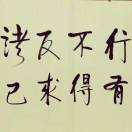 行有
不得
反求
诸己